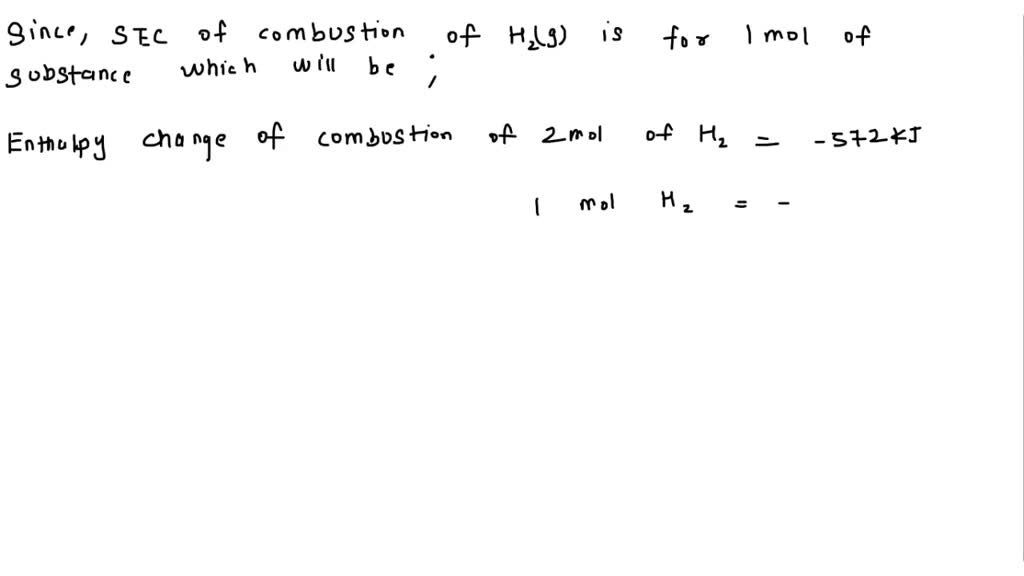 Since, SEC of combustion of H₂(g) is for 1 mol of
substance which will be ;
Enthalpy change of combustion of 2mol of H₂ = -572KJ
1 mol H₂ = -